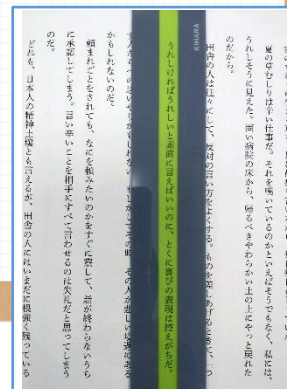 夏の草むしりは辛い仕事だ。それを嘆いているのかといえばそうでもなく、私には、
うれしそうに見えた。固い病院の床から、帰るべきやわらかい土の上にやっと戻れた
のだから。
田舎の人は往々にして、反対の言い方をよくする。ものを差しあげるときに、「つ
うれしければうれしいと素直に言えばいいのに、とくに喜びの表現は控えがちだ。
かもしれないのだ。
頼まれごとをされても、なにを頼みたいのかをすぐに察して、話が終わらないうち
に承諾してしまう。言い辛いことを相手にすべて言わせるのは失礼だと思ってしまう
のだ。
どれも、日本人の精神土壌とも言えるが、田舎の人にはいまだに根強く残っている